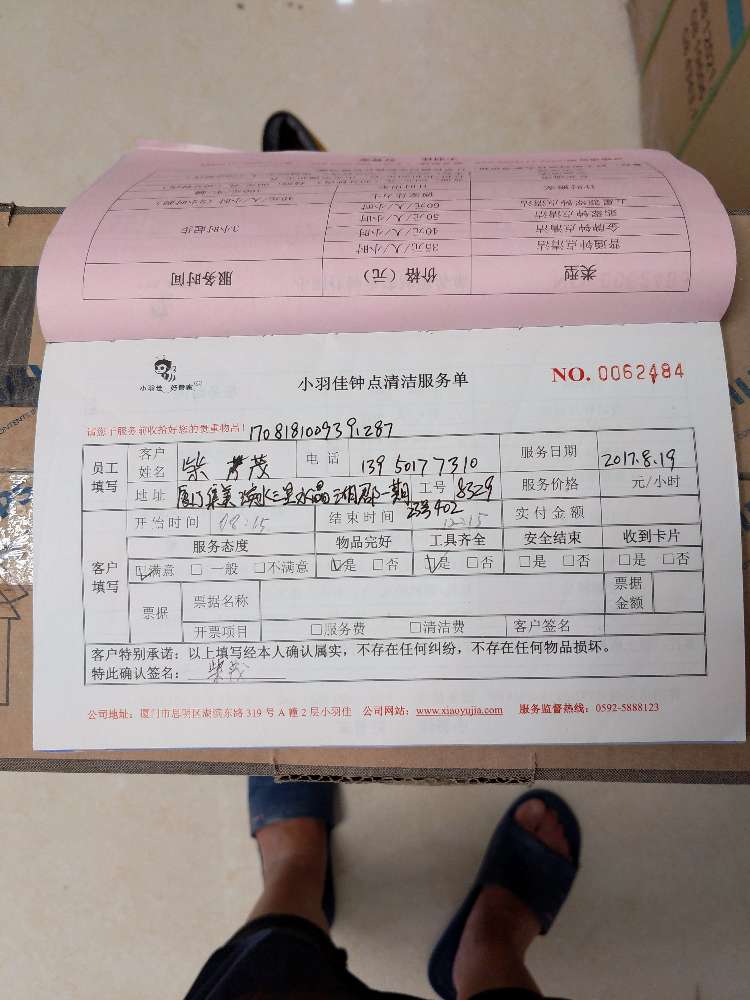 类型 价格（元） 服务时间
普通钟点清洁 35元/人/小时 3小时起步
金牌钟点清洁 40元/人/小时
50元/人/小时
60元/人/小时
小羽佳 好管家
小羽佳钟点清洁服务单
NO. 0062484
请您于服务前收拾好您的贵重物品！ 170818100939287
员工填写 客户姓名 柴 茂 电话 13950177310 服务日期 2017.8.19
地址 厦门集美 水晶湖郡一期 23号402 工号 8329 服务价格 元/小时
客户填写 开始时间 08:15 结束时间 12:15 实付金额
服务态度 物品完好 工具齐全 安全结束 收到卡片
☑满意 □一般 □不满意 ☑是 □否 ☑是 □否 □是 □否 □是 □否
票据 票据名称 票据金额
开票项目 □服务费 □清洁费 客户签名
客户特别承诺：以上填写经本人确认属实，不存在任何纠纷，不存在任何物品损坏。
特此确认签名： 柴茂
公司地址：厦门市思明区湖滨东路319号A幢2层小羽佳 公司网站：www.xiaoyujia.com 服务监督热线：0592-5888123